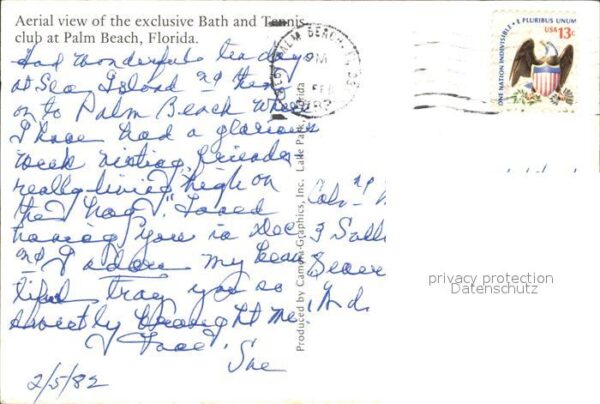 Aerial view of the exclusive Bath and Tennis
club at Palm Beach, Florida.
Had wonderful ten days
at Sea Island and then
on to Palm Beach where
I have had a glorious
week visiting friends
really living "high on
the hog". Loved
having you in Dec
and I adore my beau
tiful tray you so
sweetly brought me.
Love,
Sue
2/5/82
PALM BEACH
PM
FEB
Produced by Camera-Graphics, Inc. Lake Park, Florida
ONE NATION INDIVISIBLE • E PLURIBUS UNUM
USA 13c
3
Beaver
privacy protection
Datenschutz